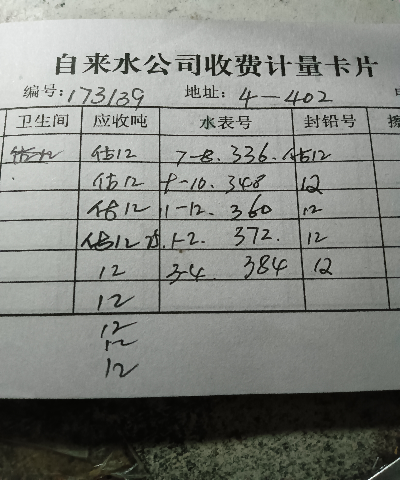 自来水公司收费计量卡片
编号:173139 地址: 4-402
卫生间 应收吨 水表号 封铅号
估12 估12 7-8. 336. 估12
估12 9-10. 348 12
估12 11-12. 360 12
估12 1-2. 372. 12
12 3-4 384 12
12
12
12
12